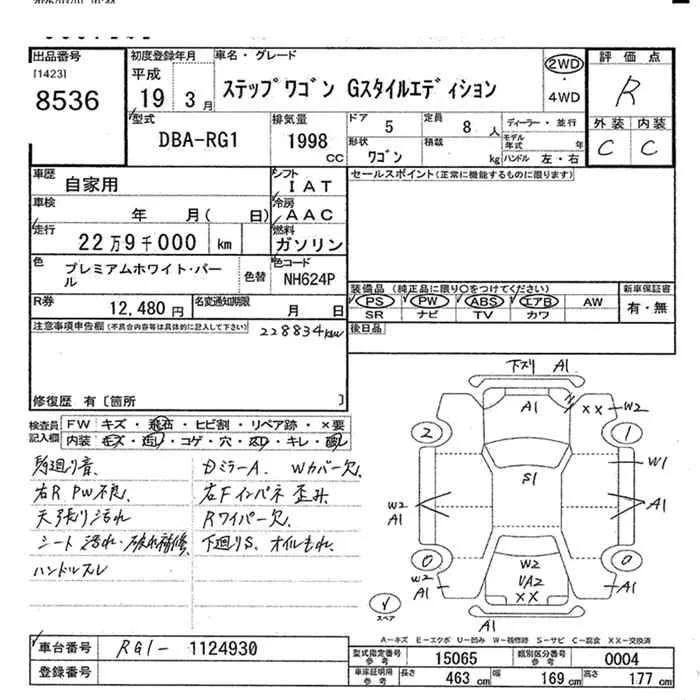 出品番号
[1423]
8536
初度登録年月
平成
19 3月
車名・グレード
ステップワゴン Gスタイルエディション
2WD
・
4WD
評価点
R
外装 内装
C C
型式
DBA-RG1
排気量
1998
CC
ドア
5
定員
8 人
ディーラー・並行
モデル年式 年
ハンドル 左・右
形状
ワゴン
積載
kg
車歴
自家用
シフト
IAT
車検
年 月( 日)
冷房
AAC
走行
22万9千000 km
燃料
ガソリン
色
プレミアムホワイト・パール
色替
色コード
NH624P
R券
12,480円
名変通知期限
月 日
セールスポイント(正常に機能するものに限ります)
装備品(純正品に限り○をつけてください)
PS PW ABS エアB AW
SR ナビ TV カワ
新車保証書
有・無
後日品
注意事項申告欄(不具合内容等は具体的に記入して下さい)
228834km
修復歴 有〔箇所 〕
検査員記入欄
FW キズ・飛石・ヒビ割・リペア跡・×要
内装
右R PW不良
天張り汚れ
シート 汚れ・破れ補修
ハンドルスレ
DミラーA Wカバー欠
左Fインパネ 歪み
Rワイパー欠
下廻りS、オイルもれ
下スリ A1
A1
XX
W2
2
1
W1
S1
W2
A1
A1
0
0
W2
A1
W2
UA2
XX
A1
スペア
A1
A-キズ E-エクボ U-凹み W-補修跡 S-サビ C-腐食 XX-交換済
車台番号
RG1-1124930
登録番号
型式指定番号
参考
15065
類別区分番号
参考
0004
車庫証明用
参考
長さ
463 cm
幅
169 cm
高さ
177 cm